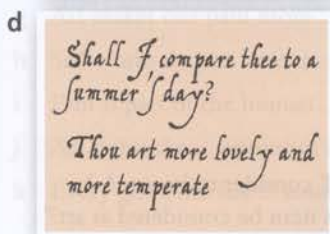 d
Shall I compare thee to a
ſummer ſ day?
Thou art more lovely and
more temperate